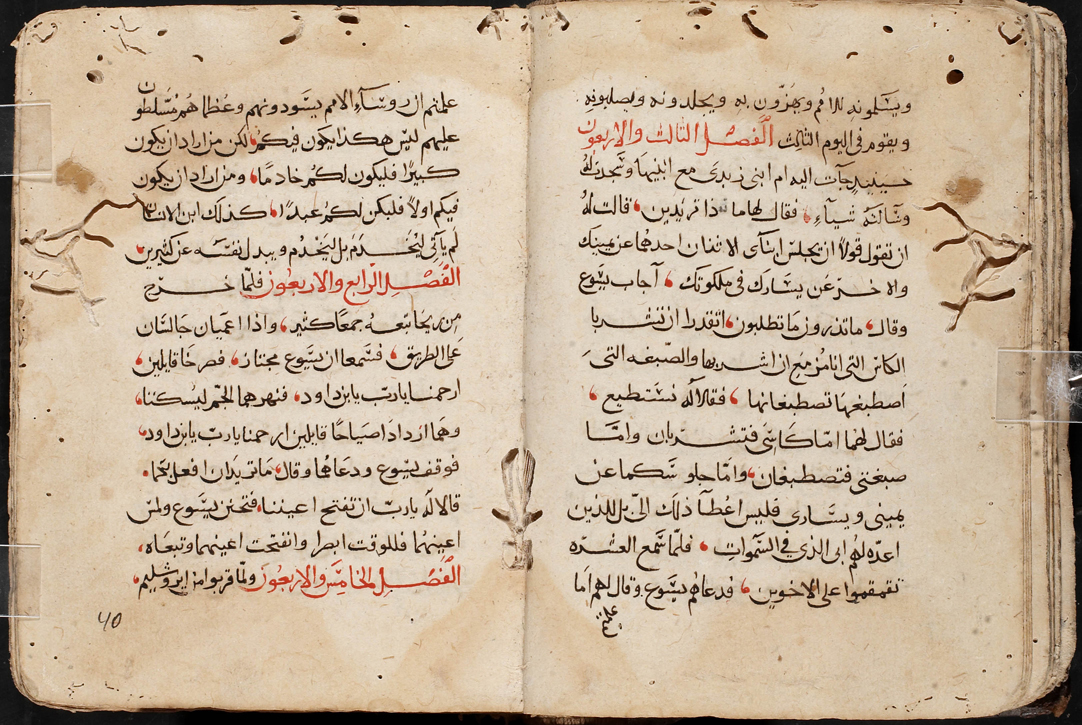 ويسلمونه للامم ويهزون به ويجلدونه ويصلبونه
ويقوم في اليوم الثالث الفصل الثالث والاربعون
حينيذ جات اليه ام ابنى زبدى مع ابنيها وسجدت له
وسالته شياء فقال لها ماذا تريدين قالت له
ان تقول قولا ان يجلس ابناى الاتنان احدهما عن يمينك
والاخر عن يسارك فى ملكوتك اجاب يسوع
وقال ما تدرون ما تطلبون اتقدرا ان تشربا
الكاس التى انا مزمع ان اشربها والصبغه التى
اصطبغها تصطبغانها فقالا له نستطيع
فقال لهما اما كاسى فتشربان واما
صبغتى فتصطبغان واما جلوسكما عن
يمينى ويسارى فليس اعطا ذلك الى بل للذين
اعده لهم ابى الذي في السموات فلما سمع العشره
تقمقموا على الاخوين فدعاهم يسوع وقال لهم اما
علمتم
علمتم ان روساء الامم يسودونهم وعظماهم مسلطون
عليهم ليس هكذا يكون فيكم لكن من اراد ان يكون
كبيرا فليكون لكم خادما ومن اراد ان يكون
فيكم اولا فليكن لكم عبدا كذلك ابن الانسان
لم ياتى ليُخدَم بل ليَخدُم ويبدل نفسه عن كثيرين
الفصل الرابع والاربعون فلما خرج
من ريحا تبعه جمعا كثير واذا اعميان جالسان
على الطريق فسمعا ان يسوع مجتاز فصرخا قايلين
ارحمنا يارب يابن داود فنهرهما الجمع ليسكتا
وهما ازدادا صياحا قايلين ارحمنا يارب يابن داود
فوقف يسوع ودعاهما وقال ما تريدان افعل بكما
قالا له يارب ان تفتح اعيننا فتحنن يسوع ولمس
اعينهما فللوقت ابصرا وانفتحت اعينهما وتبعاه
الفصل الخامس والاربعون ولما قربوا من ايروشليم
40